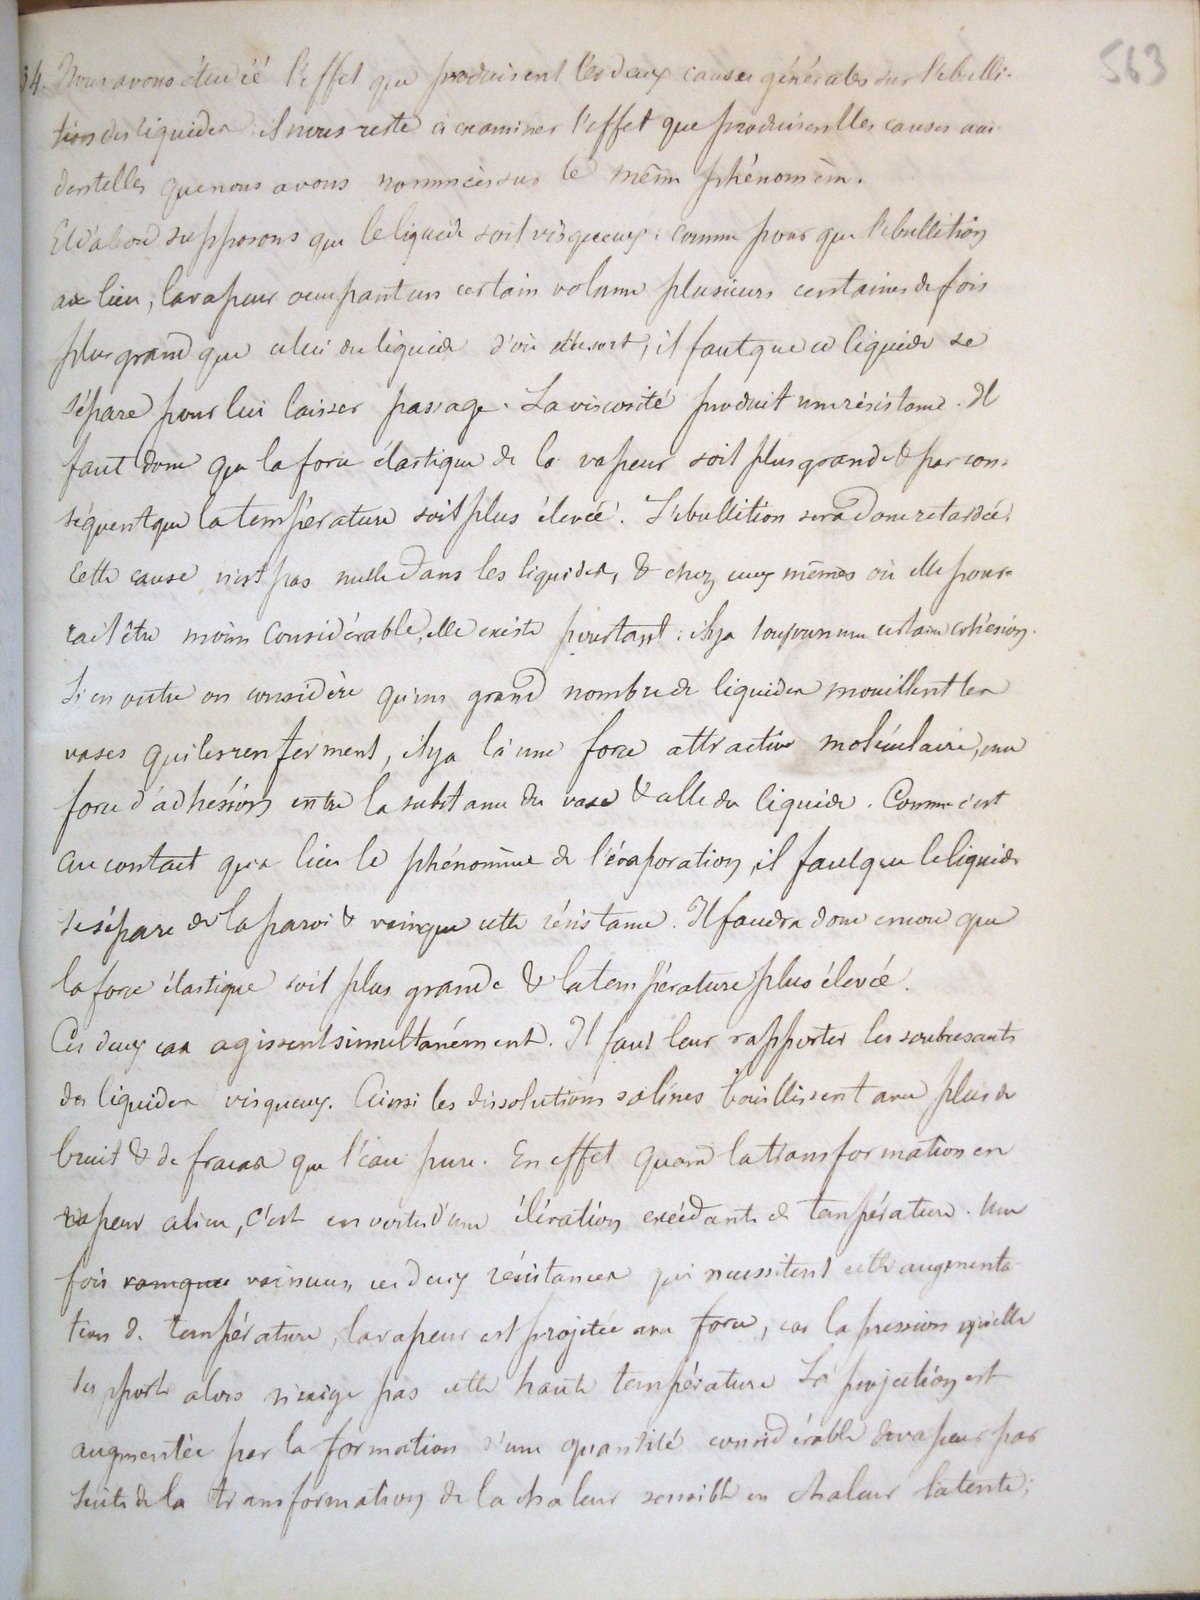 563
34. Nous avons étudié l'effet que produisent les deux causes générales sur l'ébulli-
tion des liquides : il nous reste à examiner l'effet que produisent les causes acci-
dentelles que nous avons nommées sur le même phénomèn.
Et d'abord supposons que le liquide soit visqueux : comme pour que l'ébullition
ait lieu, la vapeur occupant un certain volume plusieurs centaines de fois
plus grand que celui du liquide d'où elle sort, il faut que ce liquide se
sépare pour lui laisser passage. La viscosité produit une résistance. Il
faut donc que la force élastique de la vapeur soit plus grande & par con-
séquent que la température soit plus élevée. L'ébullition sera donc retardée.
Cette cause n'est pas nulle dans les liquides, & chez ceux mêmes où elle pour-
rait être moins considérable, elle existe pourtant : il y a toujours une certaine cohésion.
Si en outre on considère qu'un grand nombre de liquides mouillent les
vases qui les renferment, il y a là une force attractive moléculaire, une
force d'adhésion entre la substance du vase & celle du liquide. Comme c'est
au contact qu'a lieu le phénomène de l'évaporation, il faut que le liquide
se sépare de la paroi & vainque cette résistance. Il faudra donc encore que
la force élastique soit plus grande & la température plus élevée.
Ces deux cas agissent simultanément. Il faut leur rapporter les soubresauts
des liquides visqueux. Ainsi les dissolutions salines bouillissent avec plus de
bruit & de fracas que l'eau pure. En effet quand la transformation en
vapeur a lieu, c'est en vertu d'une élévation excédante de température. Une
fois vaincues ces deux résistances qui nécessitent cette augmenta-
tion de température, la vapeur est projetée avec force, car la pression qu'elle
supporte alors n'exige pas cette haute température La projection est
augmentée par la formation d'une quantité considérable de vapeur par
suite de la transformation de la chaleur sensible en chaleur latente ;